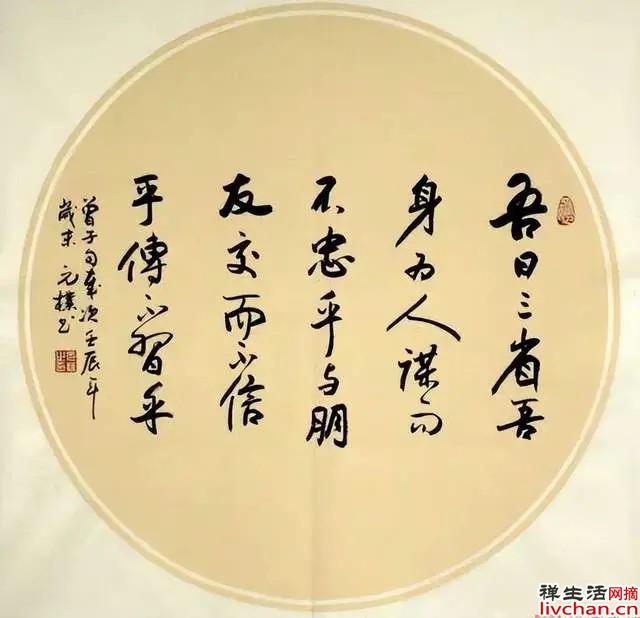 吾日三省吾
身为人谋而
不忠乎与朋
友交而不信
乎傳不習乎
曾子句岁次壬辰年
歲末 元樸书
祥生活网摘
livchan.cn